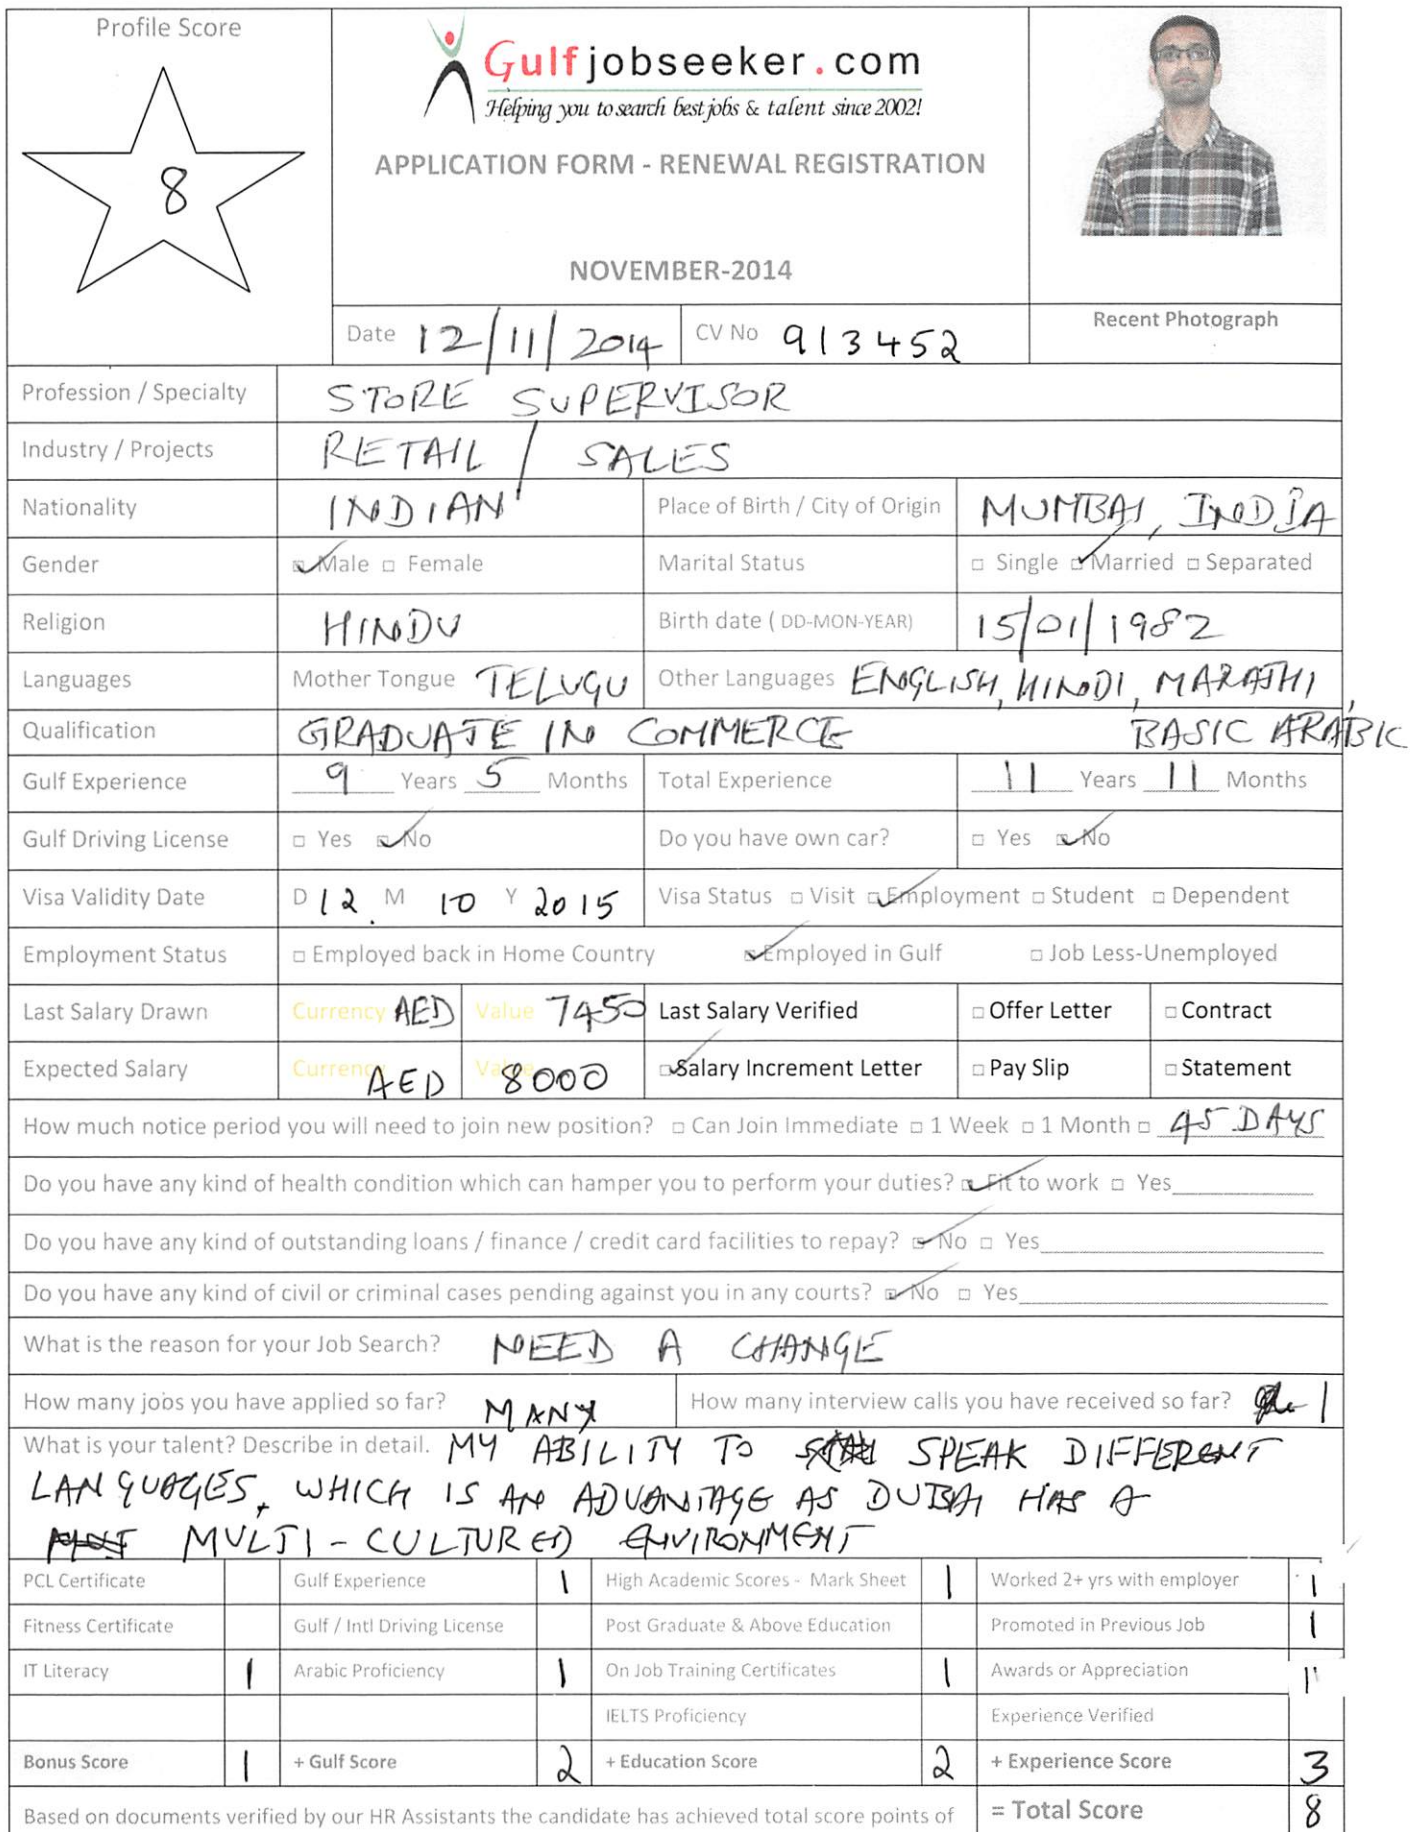 Profile Score
8
Gulfjobseeker.com
Helping you to search best jobs & talent since 2002!
APPLICATION FORM - RENEWAL REGISTRATION
NOVEMBER-2014
Date 12/11/2014 CV No 913452
Recent Photograph
Profession / Specialty STORE SUPERVISOR
Industry / Projects RETAIL / SALES
Nationality INDIAN Place of Birth / City of Origin MUMBAI, INDIA
Gender Male Female Marital Status Single Married Separated
Religion HINDU Birth date ( DD-MON-YEAR) 15/01/1982
Languages Mother Tongue TELUGU Other Languages ENGLISH, HINDI, MARATHI,
BASIC ARABIC
Qualification GRADUATE IN COMMERCE
Gulf Experience 9 Years 5 Months Total Experience 11 Years 11 Months
Gulf Driving License Yes No Do you have own car? Yes No
Visa Validity Date D 12 M 10 Y 2015 Visa Status Visit Employment Student Dependent
Employment Status Employed back in Home Country Employed in Gulf Job Less-Unemployed
Last Salary Drawn Currency AED Value 7450 Last Salary Verified Offer Letter Contract
Expected Salary Currency AED Value 8000 Salary Increment Letter Pay Slip Statement
How much notice period you will need to join new position? Can Join Immediate 1 Week 1 Month 45 DAYS
Do you have any kind of health condition which can hamper you to perform your duties? Fit to work Yes
Do you have any kind of outstanding loans / finance / credit card facilities to repay? No Yes
Do you have any kind of civil or criminal cases pending against you in any courts? No Yes
What is the reason for your Job Search? NEED A CHANGE
How many jobs you have applied so far? MANY How many interview calls you have received so far? 1
What is your talent? Describe in detail. MY ABILITY TO SPEAK DIFFERENT
LANGUAGES, WHICH IS AN ADVANTAGE AS DUBAI HAS A
MULTI-CULTURED ENVIRONMENT
PCL Certificate Gulf Experience 1 High Academic Scores - Mark Sheet 1 Worked 2+ yrs with employer 1
Fitness Certificate Gulf / Intl Driving License Post Graduate & Above Education Promoted in Previous Job 1
IT Literacy 1 Arabic Proficiency 1 On Job Training Certificates 1 Awards or Appreciation 1
IELTS Proficiency Experience Verified
Bonus Score 1 + Gulf Score 2 + Education Score 2 + Experience Score 3
Based on documents verified by our HR Assistants the candidate has achieved total score points of = Total Score 8